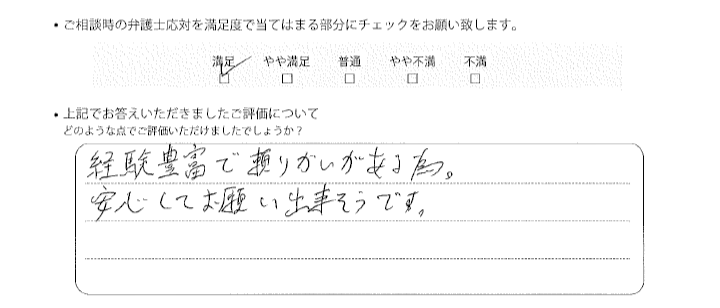 ・ご相談時の弁護士応対を満足度で当てはまる部分にチェックをお願い致します。
満足 やや満足 普通 やや不満 不満
☑ □ □ □ □
・上記でお答えいただきましたご評価について
どのような点でご評価いただけましたでしょうか？
経験豊富で頼りがいがある為。
安心してお願い出来そうです。